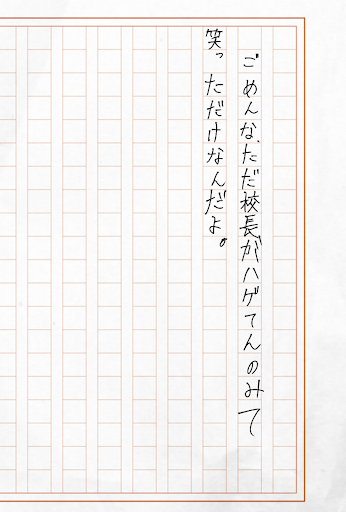 ごめんな、ただ校長がハゲてんのみて
笑っただけなんだよ。